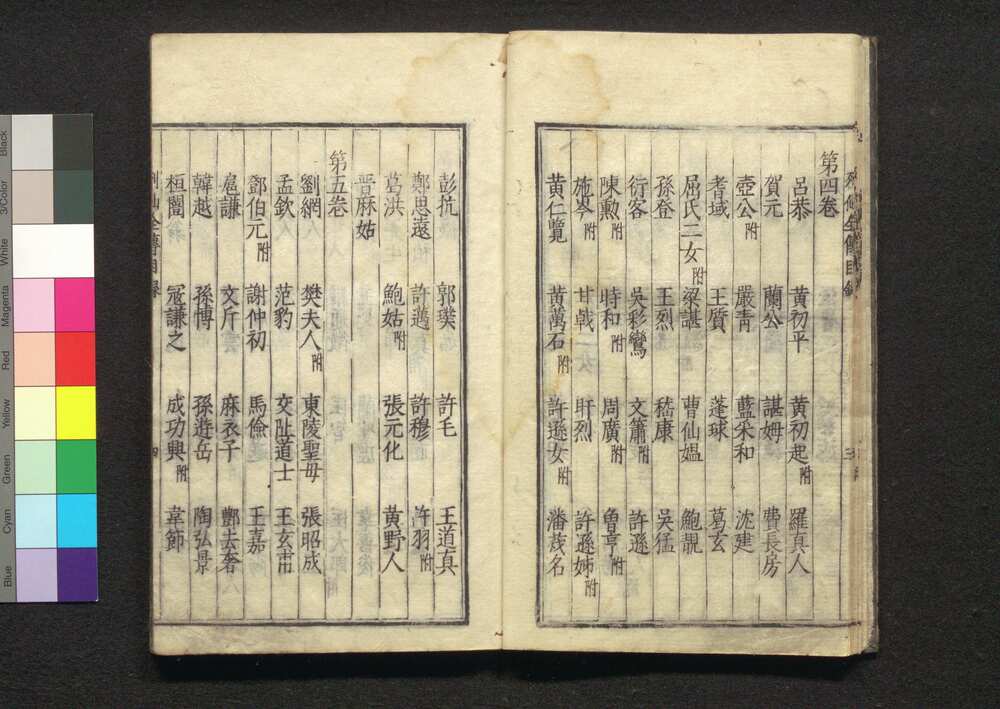 第四卷
呂恭 黃初平 黃初起附 羅真人
賀元 蘭公 諶姆 費長房
壺公附 嚴青 藍采和 沈建
耆域 王質 蓬球 葛玄
屈氏二女附 梁諶 曹仙媼 鮑靚
孫登 王烈 嵇康 吳猛
衍客 吳彩鸞 文簫附 許遜
陳勲附 時和附 周廣附 魯亨附
施岑附 甘戟 盱烈 許遜姊附
黃仁覽 黃萬石附 許遜女附 潘茂名
彭抗 郭璞 許毛 王道真
鄭思遠 許邁 許穆 許羽附
葛洪 鮑姑附 張元化 黃野人
晉麻姑
第五卷
劉綱 樊夫人附 東陵聖母 張昭成
孟欽 范豹 交阯道士 王玄甫
鄧伯元附 謝仲初 馬儉 王嘉
扈謙 文斤 麻衣子 酆去奢
韓越 孫博 孫遊岳 陶弘景
桓闓 冦謙之 成功興附 韋節
列仙全傳目録 四
Black
3/Color
White
Magenta
Red
Yellow
Green
Cyan
Blue